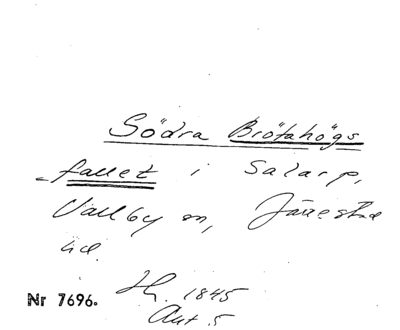 Södra Brötahögs
fallet i Salarp,
Vallby sn, Järrestad
hd.
Nr 7696.
H. 1845
Akt 5